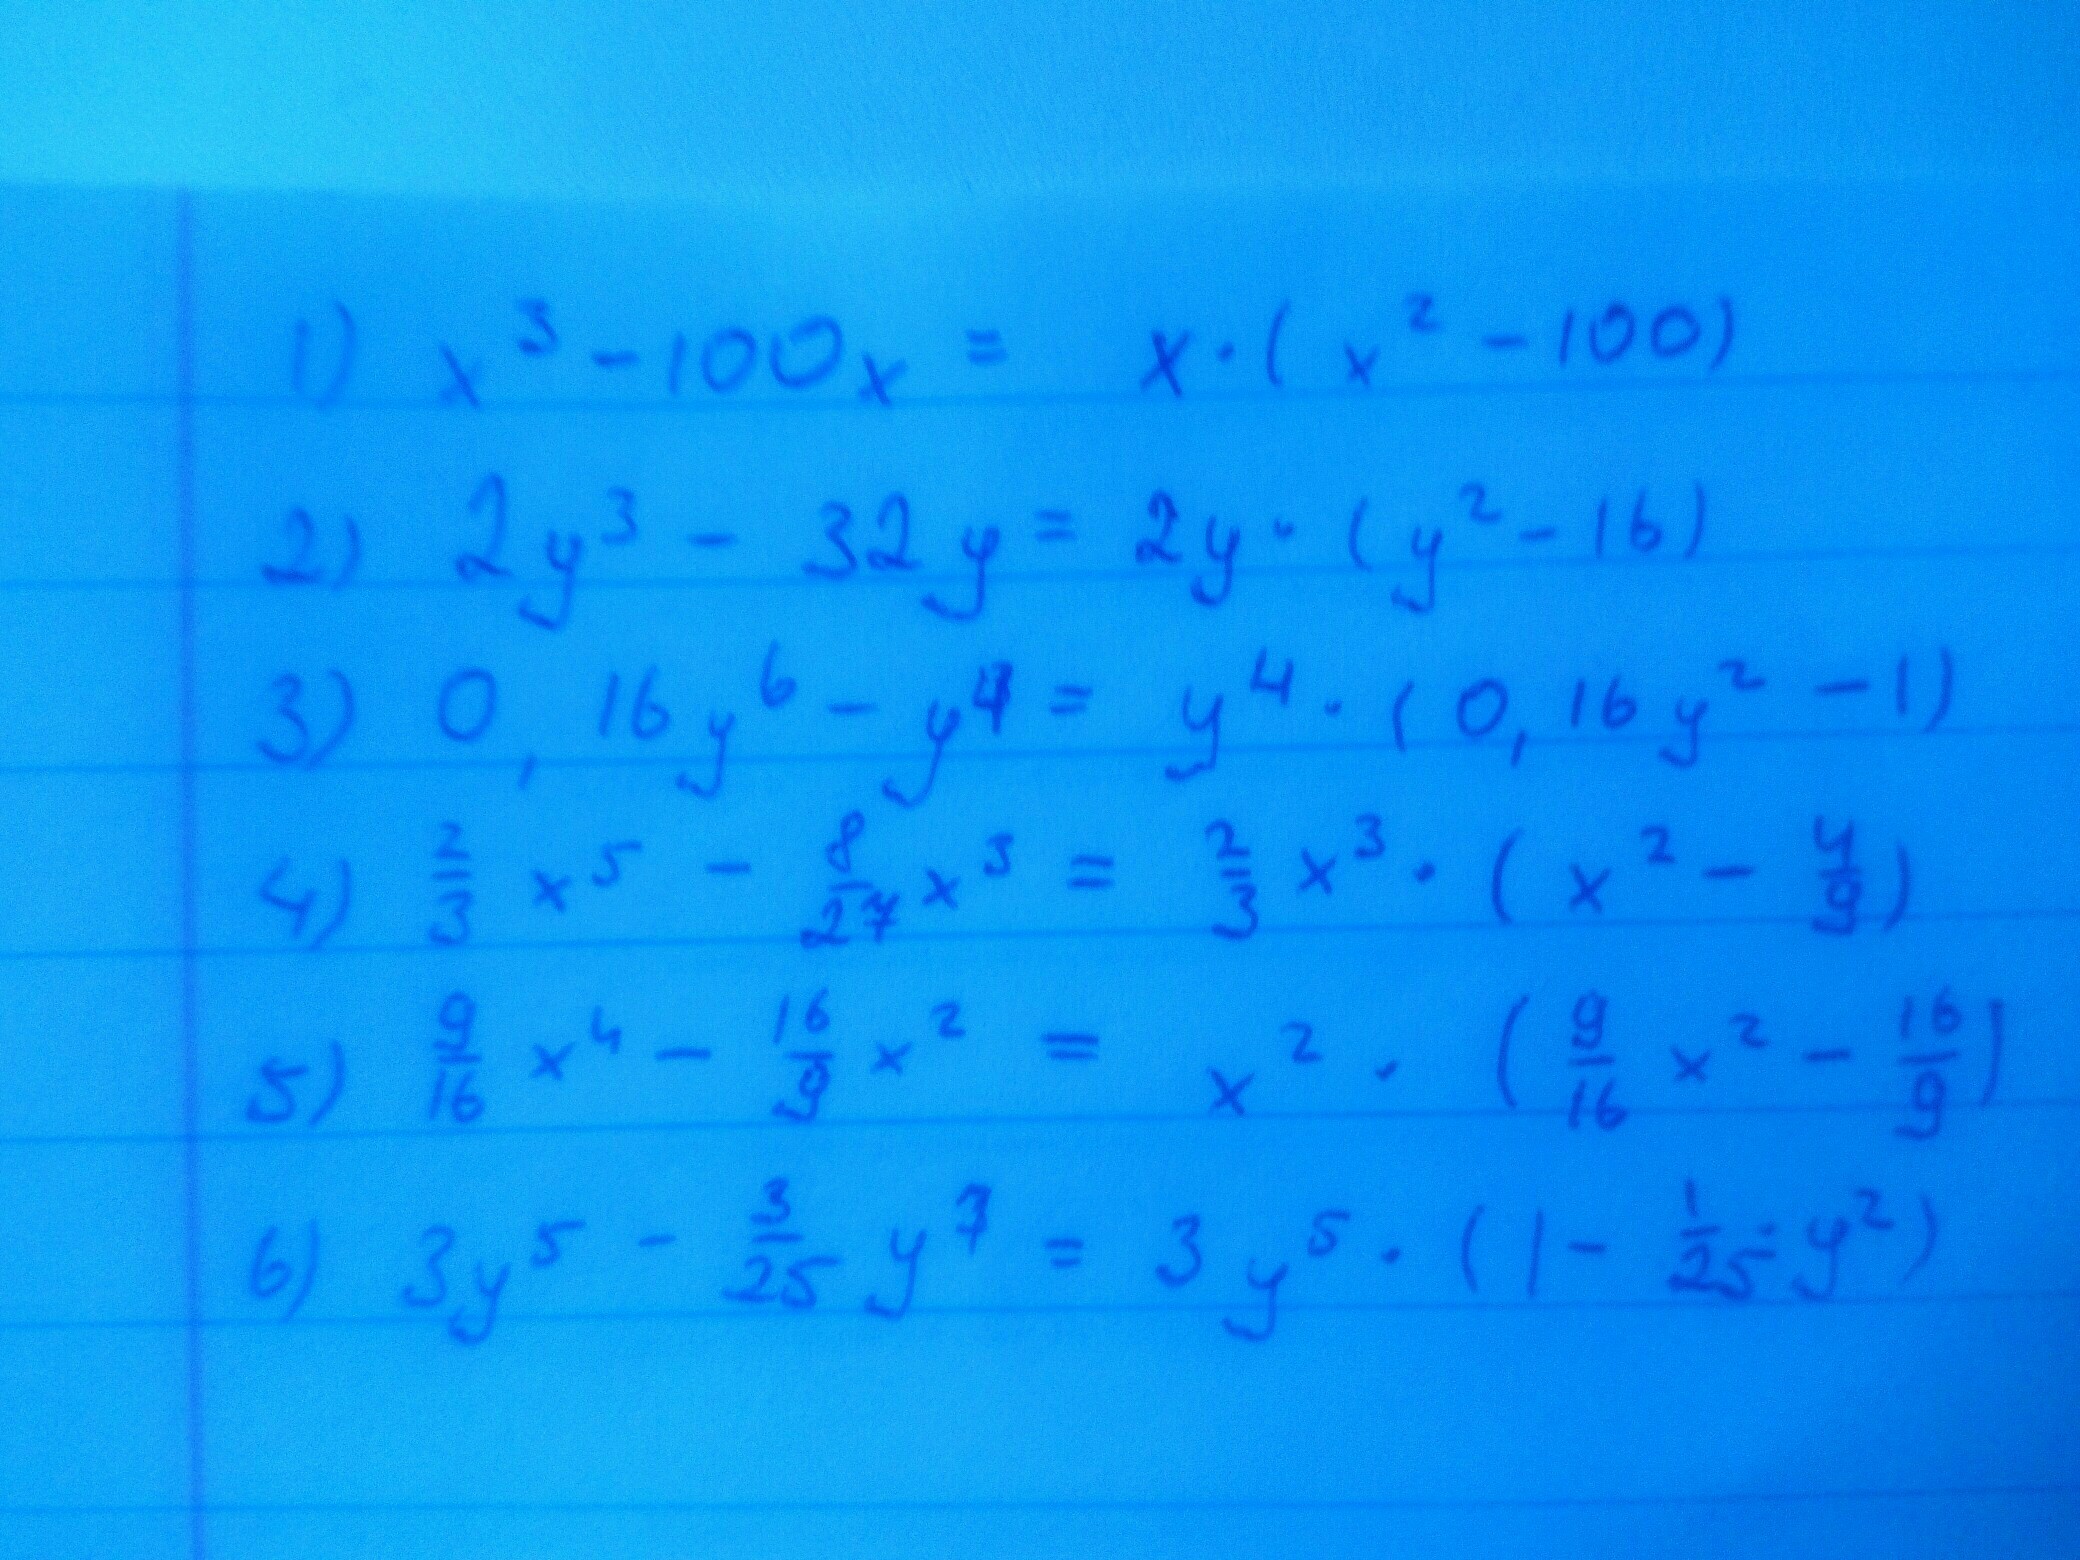 1) x³ - 100x = x · (x² - 100)
2) 2y³ - 32y = 2y · (y² - 16)
3) 0,16y⁶ - y⁴ = y⁴ · (0,16y² - 1)
4) 2/3 x⁵ - 8/27 x³ = 2/3 x³ · (x² - 4/9)
5) 9/16 x⁴ - 16/9 x² = x² · (9/16 x² - 16/9)
6) 3y⁵ - 3/25 y⁷ = 3y⁵ · (1 - 1/25 y²)